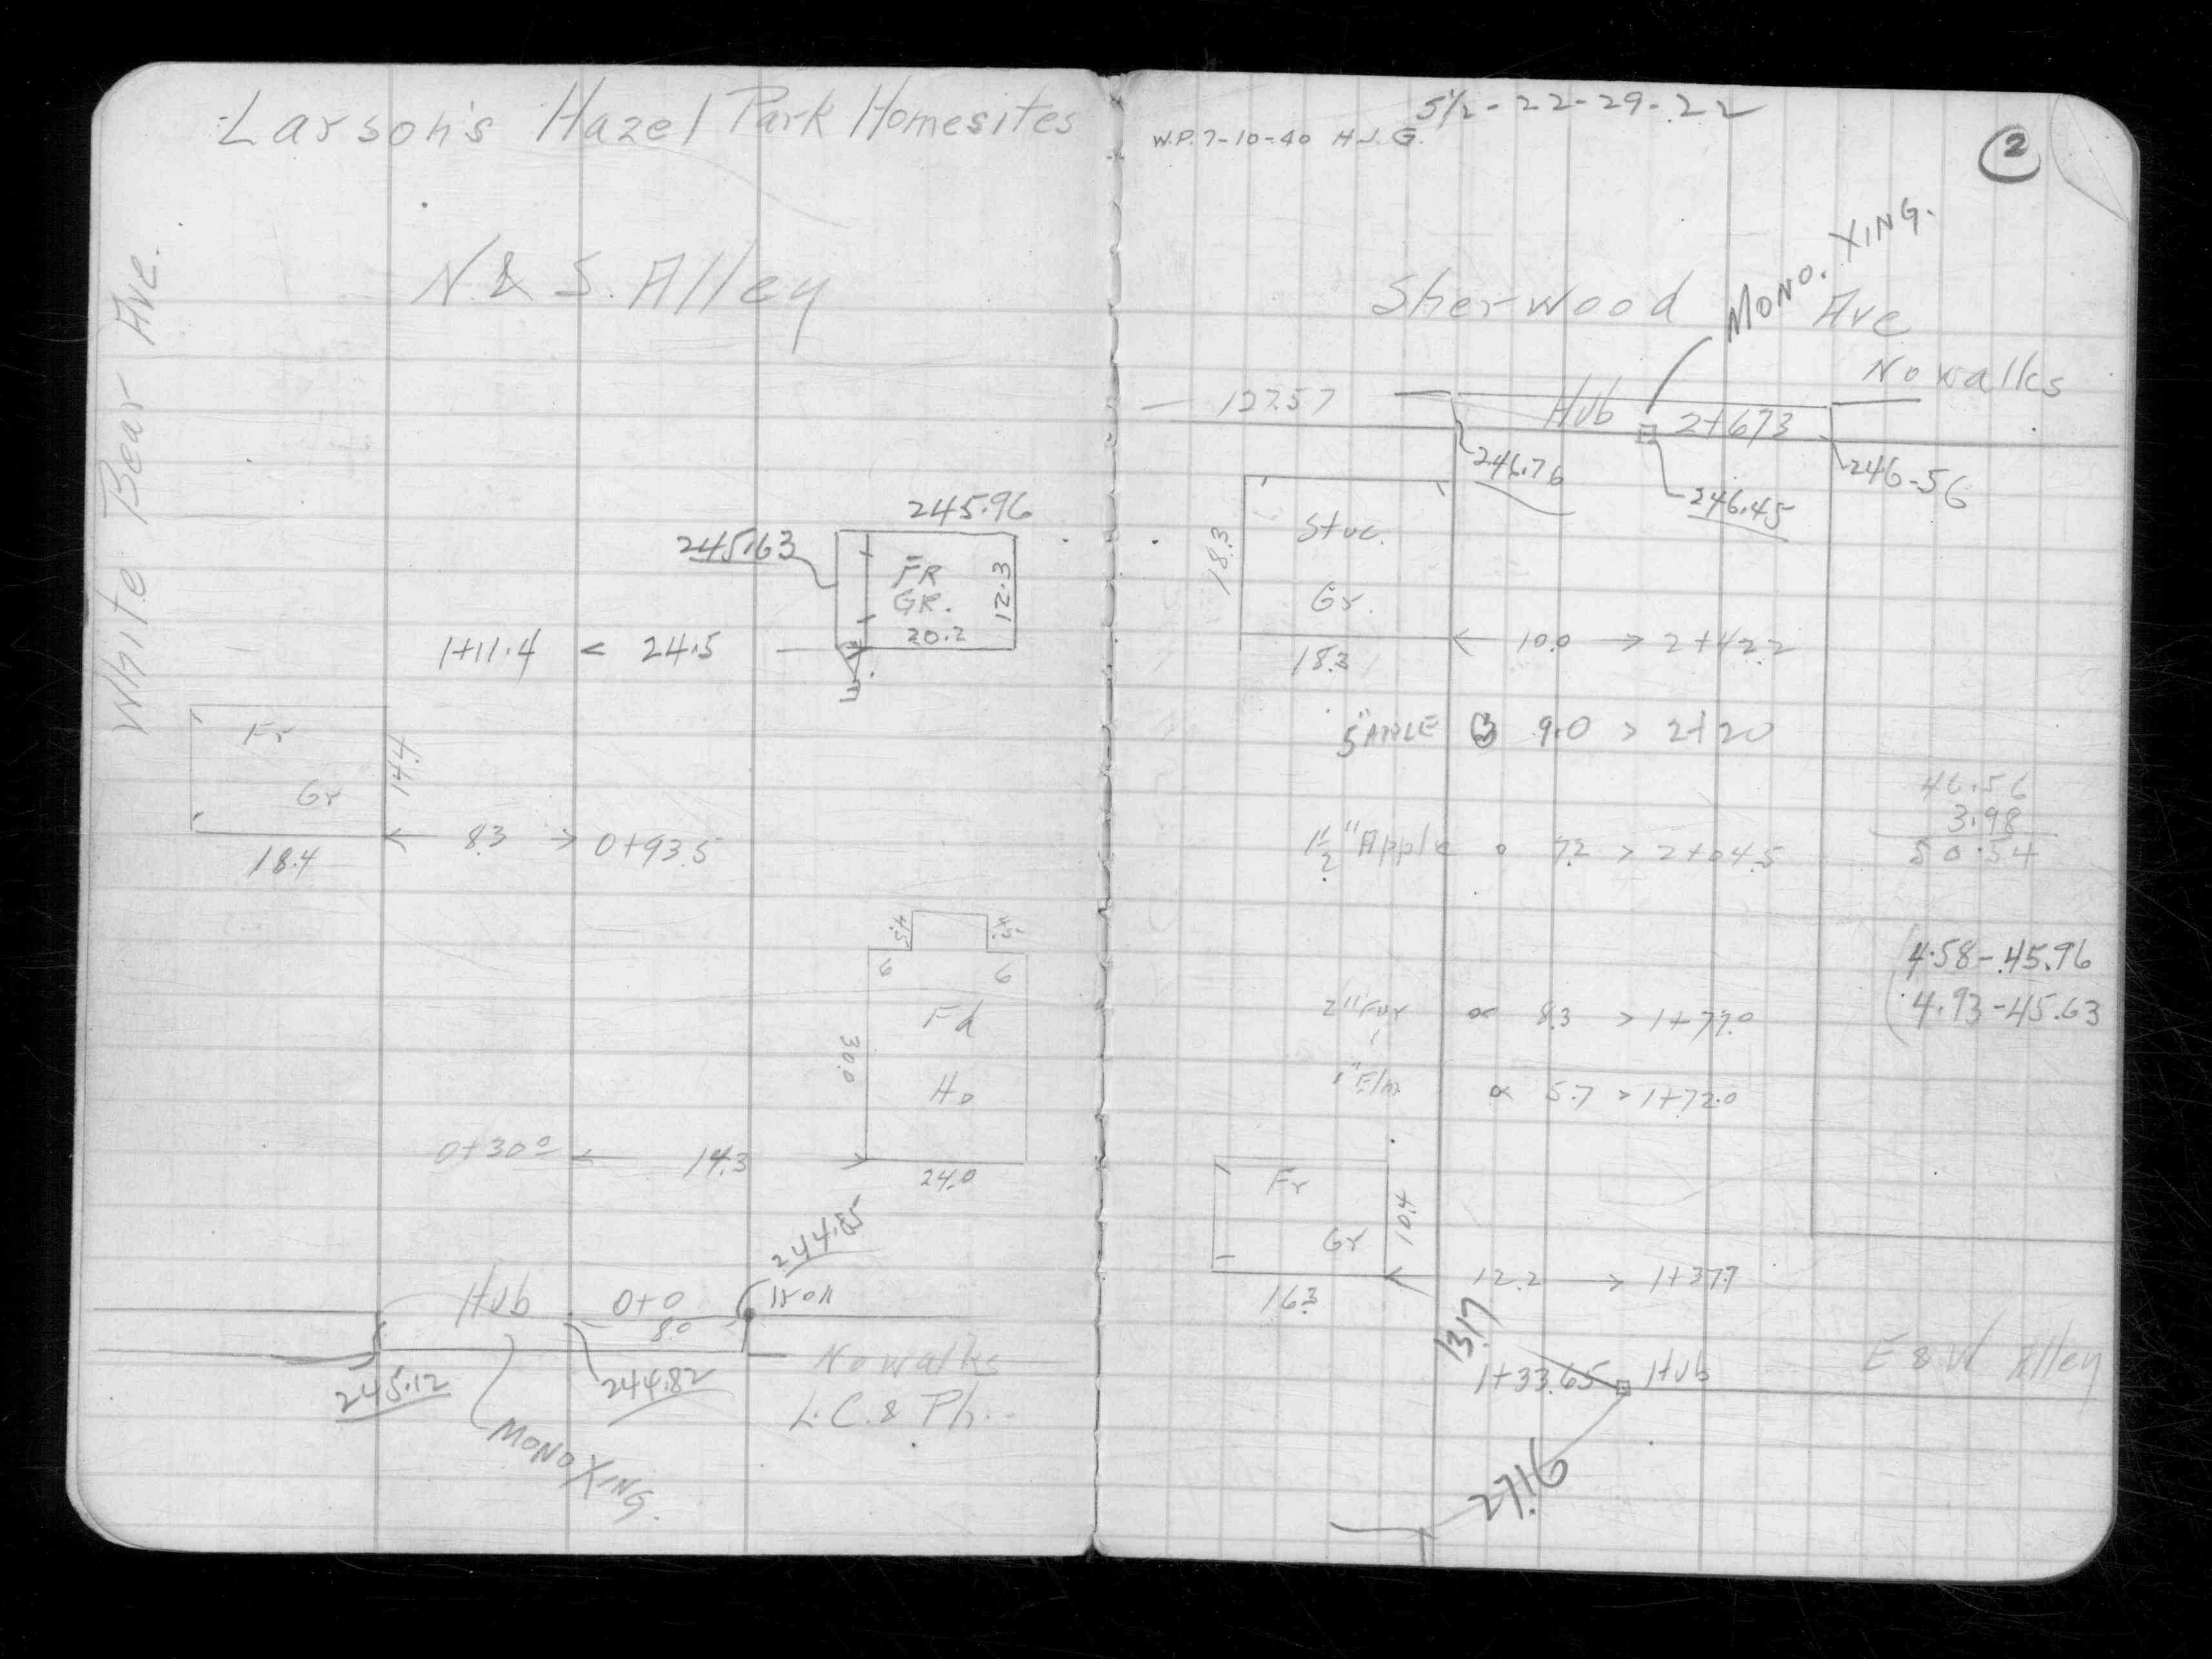 Larson's Hazel Park Homesites
N. & S. Alley
White Bear Ave.
245.96
245.63
FR
GR.
12.3
20.2
1+11.4 < 24.5
Fr
Gr
14.4
18.4
8.3 → 0+93.5
4.5
4.5
6
6
Fd
Ho
30.0
0+30.0 ← 14.3
24.0
244.85
Hub 0+0
8.0
Iron
245.12
244.82
No walks
L.C. & Ph.
MONO XING.
5 1/2 - 22-29-22
W.P. 7-10-40 H.J.G.
2
MONO. XING.
Sherwood Ave
No walks
127.57
Hub 2+67.3
246.76
246.45
246.56
Stuc.
Gr.
18.3
18.3
← 10.0 → 2+42.2
5" APPLE 9.0 > 2+20
1 1/2" Apple o 7.2 > 2+04.5
46.56
3.98
50.54
4.58-45.96
4.93-45.63
2" 8.3 > 1+77.0
1" Elm 5.7 > 1+72.0
Fr
Gr
10.4
16.3
← 12.2 → 1+37.7
13.17
1+33.65 Hub
E & W Alley
27.16